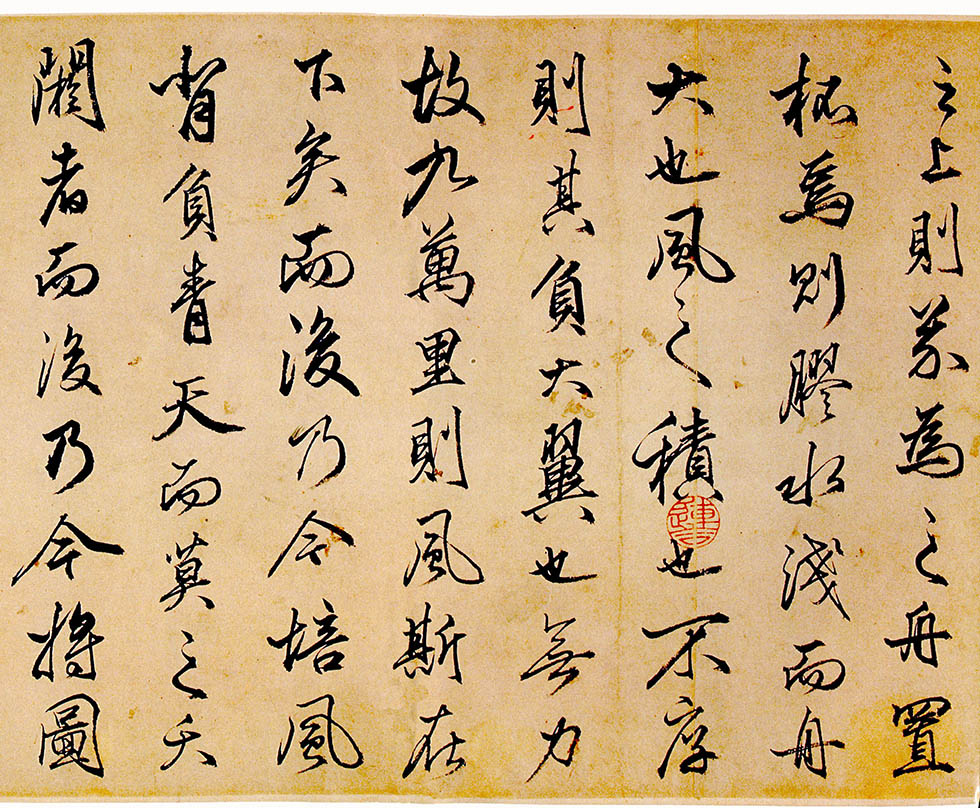 之上則芥為之舟置
桮焉則膠水淺而舟
大也風之積也不厚
則其負大翼也無力
故九萬里則風斯在
下矣而後乃今培風
背負青天而莫之夭
閼者而後乃今將圖